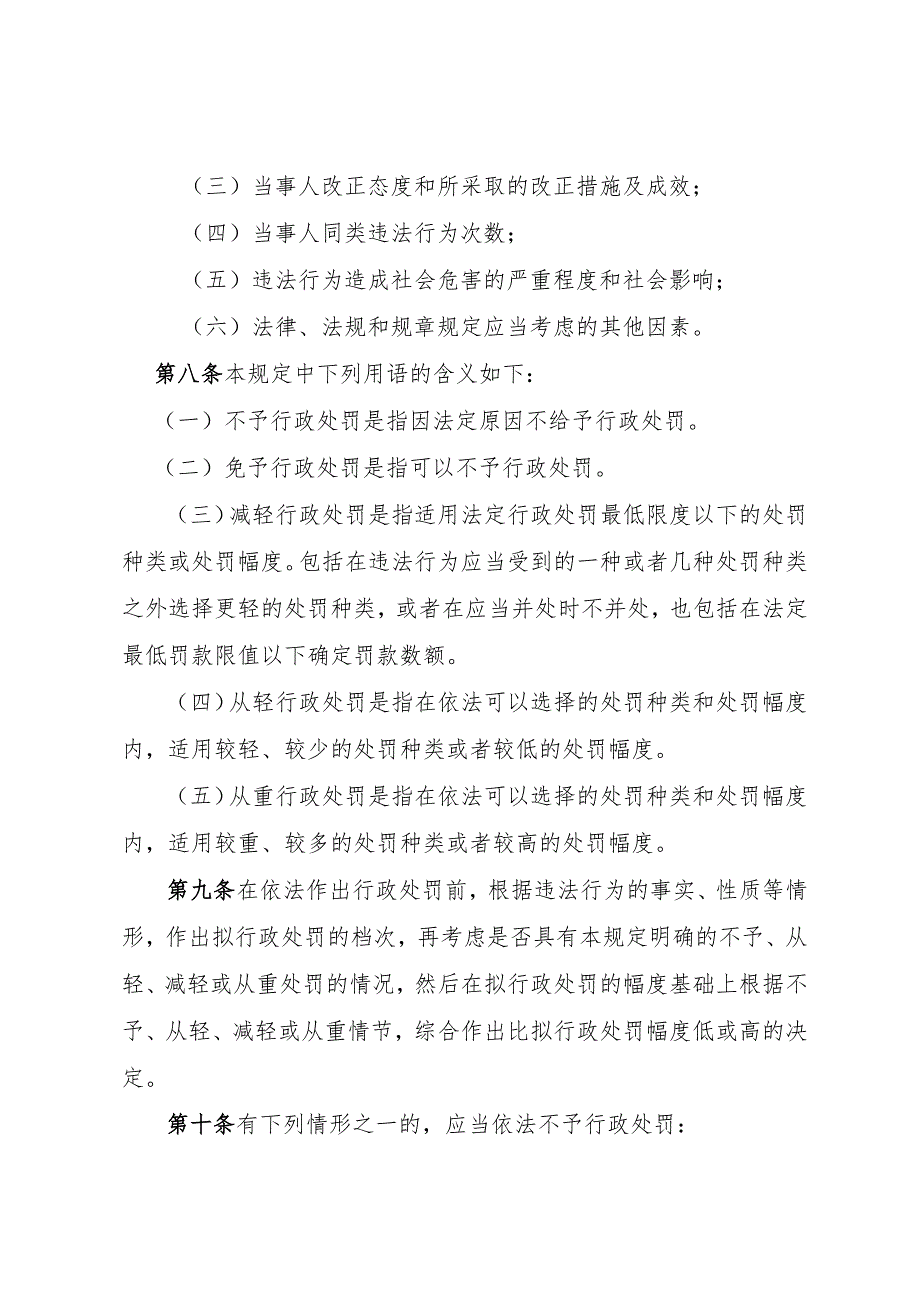 （三）当事人改正态度和所采取的改正措施及成效；
（四）当事人同类违法行为次数；
（五）违法行为造成社会危害的严重程度和社会影响；
（六）法律、法规和规章规定应当考虑的其他因素。
第八条本规定中下列用语的含义如下：
（一）不予行政处罚是指因法定原因不给予行政处罚。
（二）免予行政处罚是指可以不予行政处罚。
（三）减轻行政处罚是指适用法定行政处罚最低限度以下的处罚
种类或处罚幅度。包括在违法行为应当受到的一种或者几种处罚种类
之外选择更轻的处罚种类，或者在应当并处时不并处，也包括在法定
最低罚款限值以下确定罚款数额。
（四）从轻行政处罚是指在依法可以选择的处罚种类和处罚幅度
内，适用较轻、较少的处罚种类或者较低的处罚幅度。
（五）从重行政处罚是指在依法可以选择的处罚种类和处罚幅度
内，适用较重、较多的处罚种类或者较高的处罚幅度。
第九条在依法作出行政处罚前，根据违法行为的事实、性质等情
形，作出拟行政处罚的档次，再考虑是否具有本规定明确的不予、从
轻、减轻或从重处罚的情况，然后在拟行政处罚的幅度基础上根据不
予、从轻、减轻或从重情节，综合作出比拟行政处罚幅度低或高的决
定。
第十条有下列情形之一的，应当依法不予行政处罚：